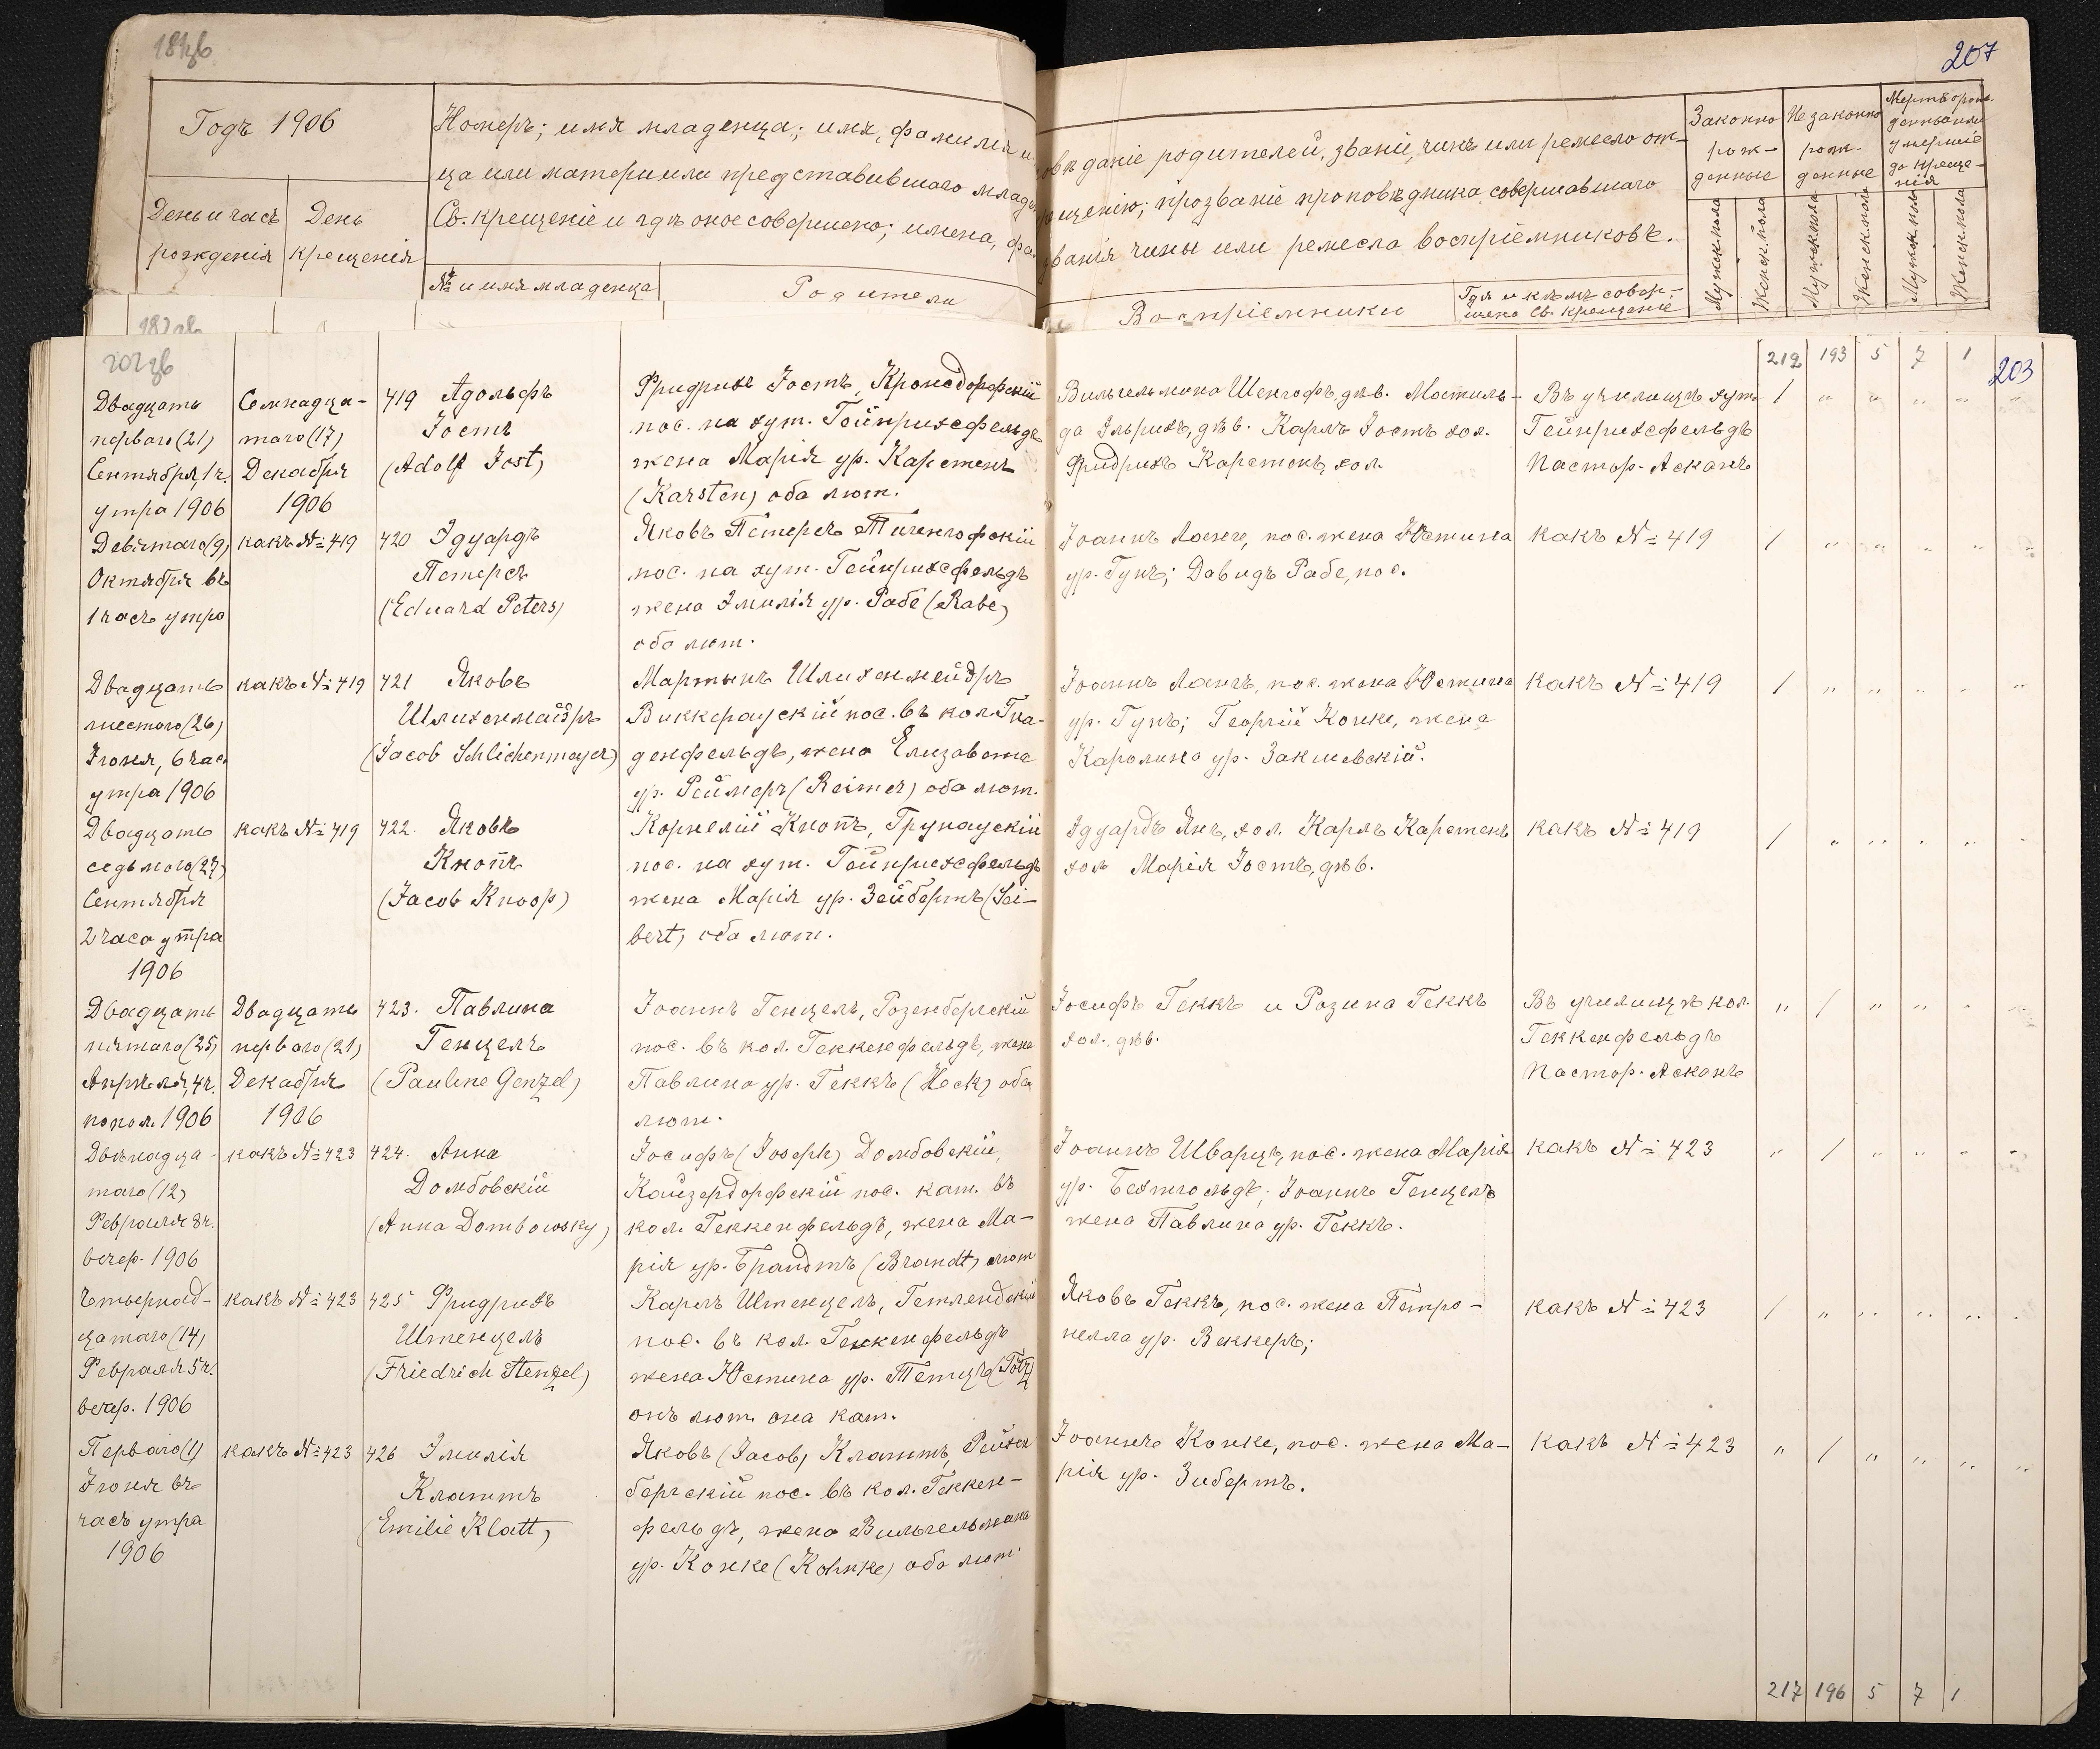 207
Годъ 1906
День и часъ
рожденія
День
крещенія
Номеръ; имя младенца; имя, фамилія и
ца или матери или представившаго младен
Св. крещеніе и гдѣ оное совершено; имена, фа
№ и имя младенца
Родители
овѣданіе родителей, званіе, чинъ или ремесло от-
щенію; прозваніе проповѣдника совершавшаго
званія чины или ремесла воспріемниковъ.
Воспріемники
Гдѣ и кѣмъ совер-
шено Св. крещеніе
Законно
рож-
денные
Незаконно
рож-
денные
Мертворож-
денные или
умершіе
до креще-
нія
Мужск. пола
Женск. пола
Мужск. пола
Женск. пола
Мужск. пола
Женск. пола
212 193 5 7 1
203
Двадцать
перваго (21)
Сентября, 1 ч.
утра 1906
Семнадца-
таго (17)
Декабря
1906
419 Адольфъ
Іостъ
(Adolf Jost)
Фридрихъ Іостъ, Кронсдорфскій
пос. на хут. Гейнрихсфельдъ
жена Марія ур. Карстенъ
(Karsten) оба лют.
Вильгельмина Шенгофъ, дѣв. Матиль-
да Ульрихъ, дѣв. Карлъ Іостъ хол.
Фридрихъ Карстенъ, хол.
Въ училищѣ хут.
Гейнрихсфельдъ
Пастор. Асканъ
1 " " " " "
Девятаго (9)
Октября въ
1 часъ утра
какъ №419
420 Эдуардъ
Петерсъ
(Eduard Peters)
Яковъ Петерсъ Тигенгофскій
пос. на хут. Гейнрихсфельдъ
жена Эмилія ур. Рабе (Rabe)
оба лют.
Іоаннъ Ланге, пос. жена Юстина
ур. Гунъ; Давидъ Рабе, пос.
какъ №419
1 " " " " "
Двадцать
шестого (26)
Іюня, 6 час.
утра 1906
какъ №419
421 Яковъ
Шлихенмайеръ
(Jacob Schlichenmajer)
Мартынъ Шлихенмейеръ
Виккераускій пос. въ кол. Гна-
денфельдъ, жена Елизавета
ур. Реймеръ (Reimer) оба лют.
Іоаннъ Лангъ, пос. жена Юстина
ур. Гунъ; Георгій Конке, жена
Каролина ур. Закшевскій.
какъ №419
1 " " " " "
Двадцать
седьмого (27)
Сентября
2 часа утра
1906
какъ №419
422. Яковъ
Кнопъ
(Jacob Knoop)
Корнелій Кнопъ, Грунаускій
пос. на хут. Гейнрихсфельдъ
жена Марія ур. Зейбертъ (Sei-
bert) оба лют.
Эдуардъ Янъ, хол. Карлъ Карстенъ
хол. Марія Іостъ, дѣв.
какъ №419
1 " " " " "
Двадцать
пятаго (25)
Апрѣля, 4 ч.
попол. 1906
Двадцать
перваго (21)
Декабря
1906
423. Павлина
Генцель
(Pauline Genzel)
Іоаннъ Генцель, Розенбергскій
пос. въ кол. Геккенфельдъ, жена
Павлина ур. Геккъ (Heck) оба
лют.
Іосифъ Геккъ и Розина Геккъ
хол., дѣв.
Въ училищѣ кол.
Геккенфельдъ
Пастор. Асканъ
" 1 " " " "
Двѣнадца-
таго (12)
Февраля 8 ч.
вечер. 1906
какъ №423
424. Анна
Домбовскій
(Anna Dombowsky)
Іосифъ (Joseph) Домбовскій,
Кайзердорфскій пос. кат. въ
кол. Геккенфельдъ, жена Ма-
рія ур. Брандтъ (Brandt) лют.
Іоаннъ Шварцъ, пос. жена Марія
ур. Бехтгольдъ; Іоаннъ Генцель
жена Павлина ур. Геккъ.
какъ №423
" 1 " " " "
Четырнад-
цатаго (14)
Февраля 5 ч.
вечер. 1906
какъ №423
425 Фридрихъ
Штенцель
(Friedrich Stenzel)
Карлъ Штенцель, Гетландскій
пос. въ кол. Геккенфельдъ
жена Юстина ур. Тетцъ
онъ лют. она кат.
Яковъ Геккъ, пос. жена Петро-
нелла ур. Веккеръ;
какъ №423
1 " " " " "
Перваго (1)
Іюня въ
часъ утра
1906
какъ №423
426 Эмилія
Клаттъ
(Emilie Klatt)
Яковъ (Jacob) Клаттъ, Рейхен
бергскій пос. въ кол. Геккен-
фельдъ, жена Вильгельмина
ур. Конке (Kohnke) оба лют.
Іоаннъ Конке, пос. жена Ма-
рія ур. Зибертъ.
какъ №423
" 1 " " " "
217 196 5 7 1